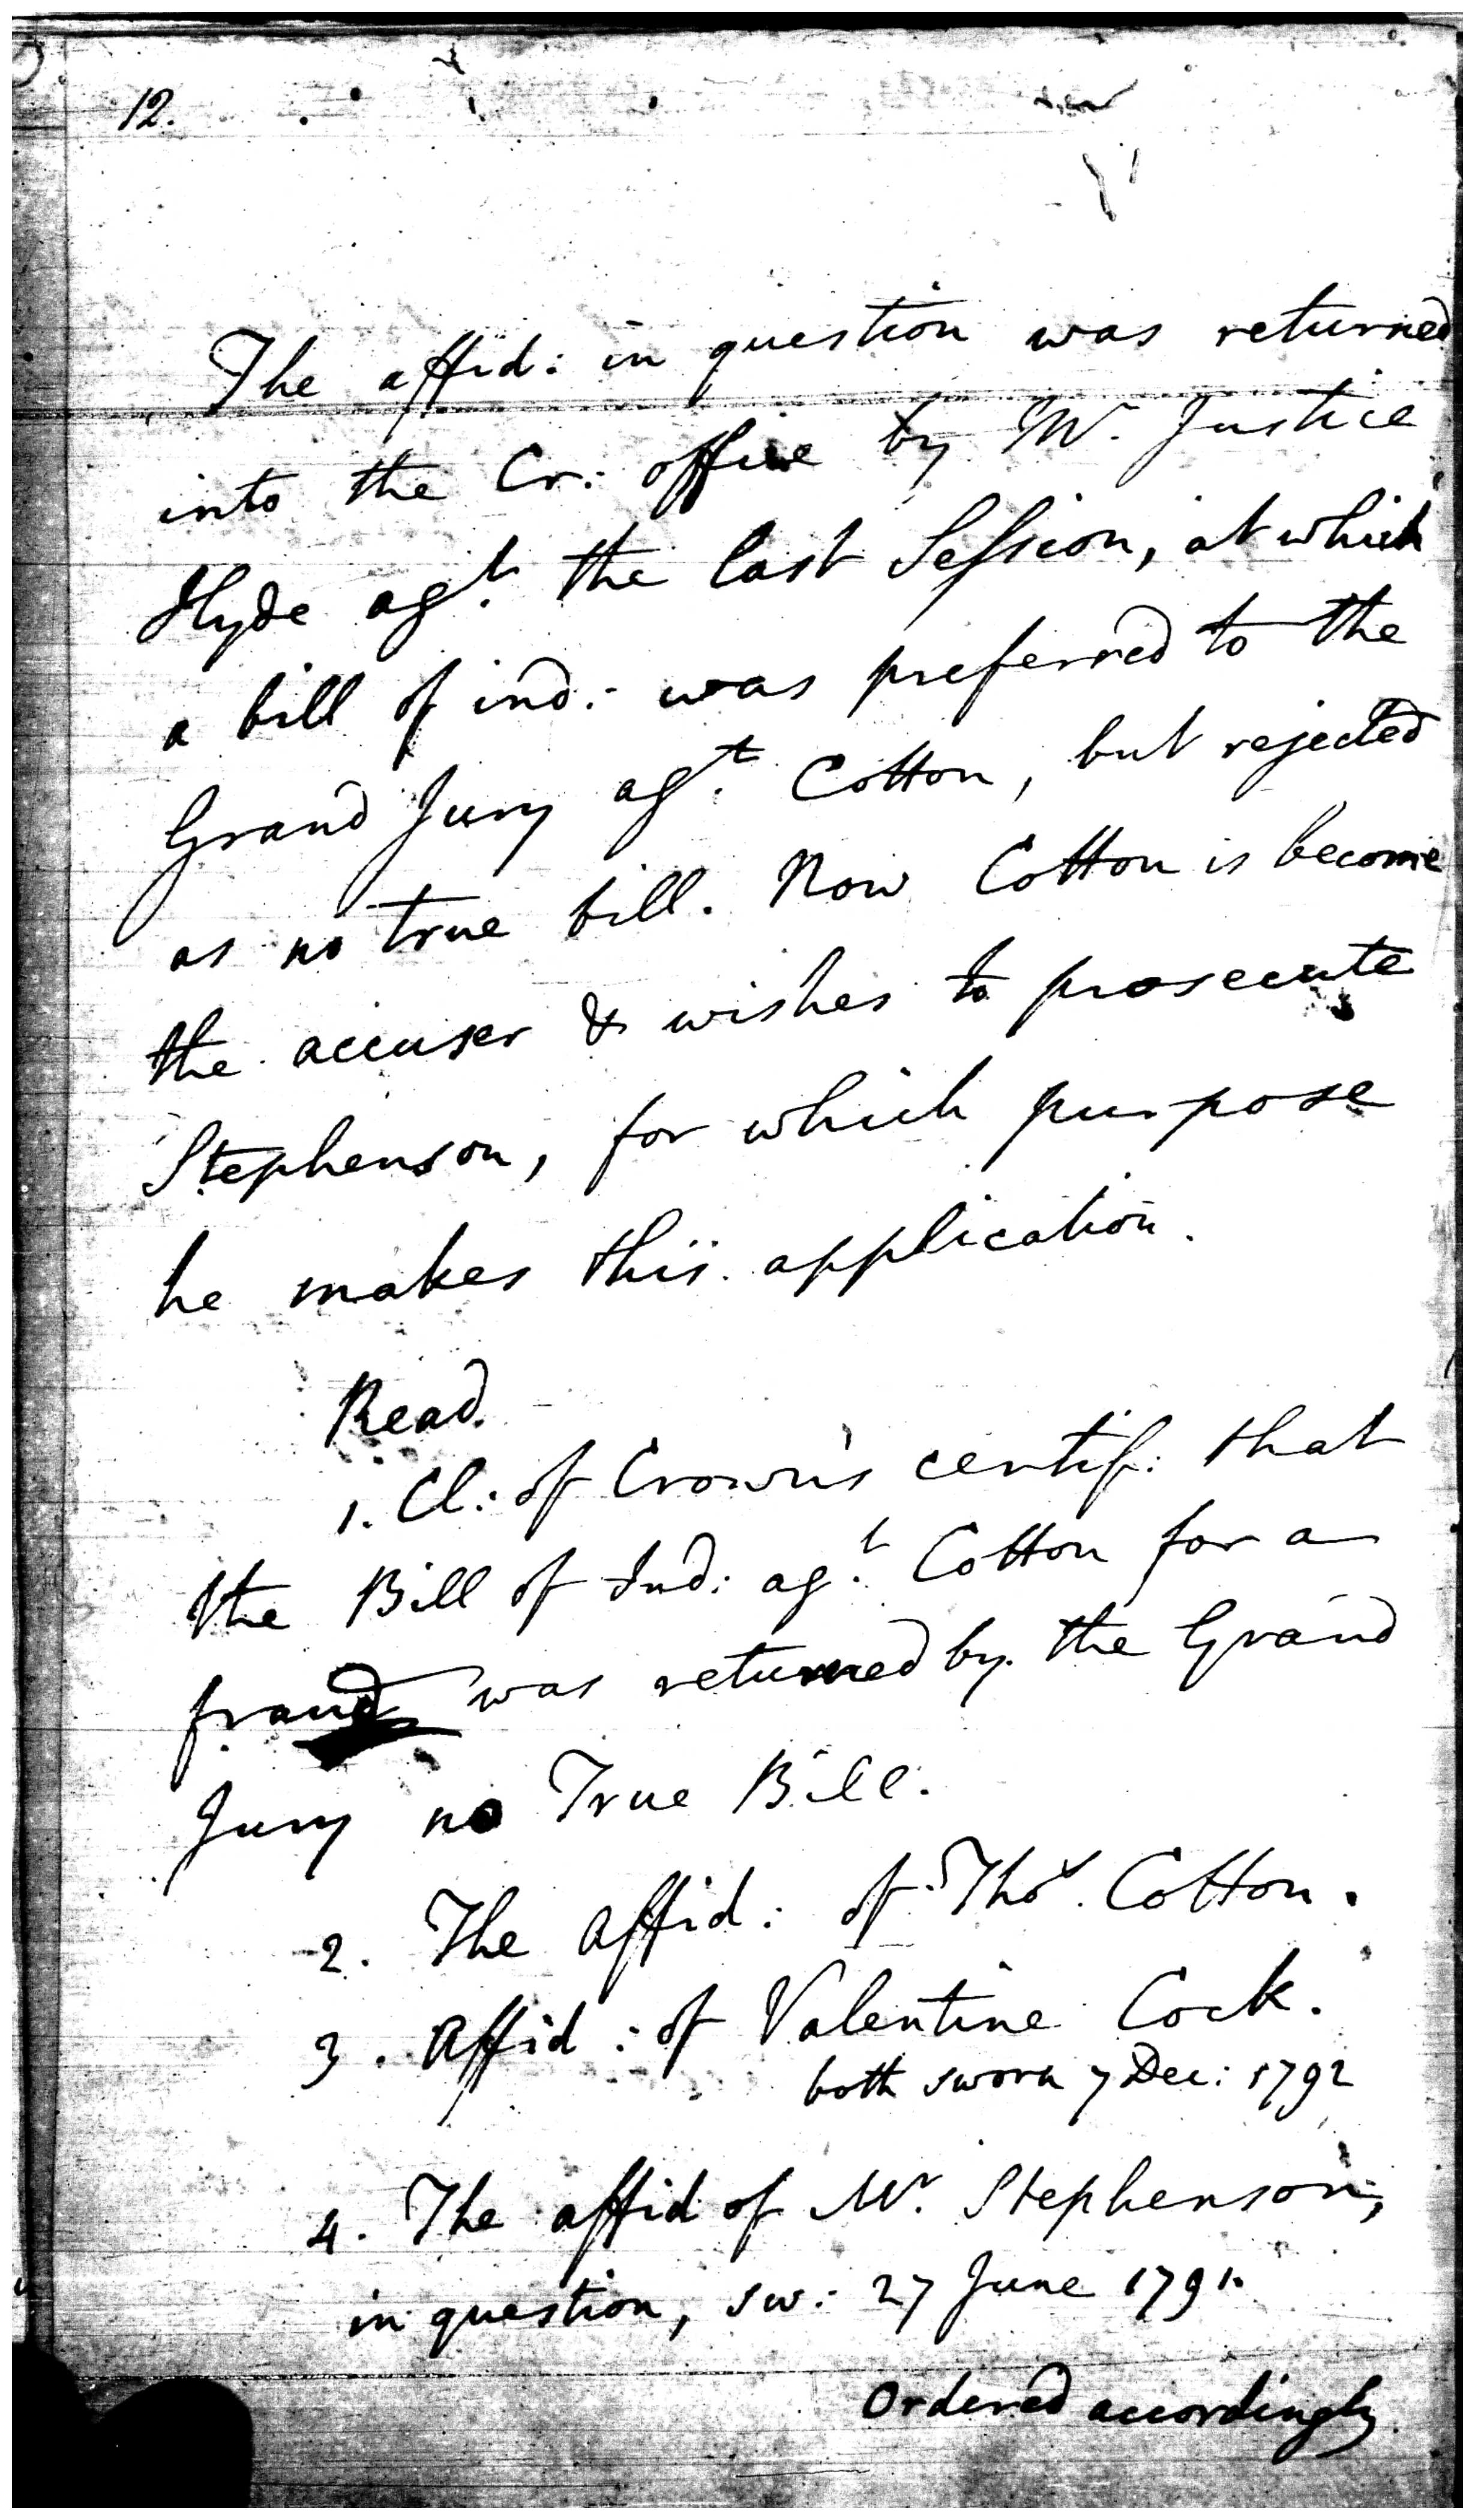 12.
The affid: in question was returned
into the Cr: office by Mr. Justice
Hyde agt. the last Session, at which
a bill of ind: was preferred to the
Grand Jury agt. Cotton, but rejected
as no true bill. Now Cotton is become
the accuser & wishes to prosecute
Stephenson, for which purpose
he makes this application.
Read.
1. Cl: of Crown's certif: that
the Bill of Ind: agt. Cotton for a
fraud was returned by the Grand
Jury no True Bill.
2. The Affid: of Thos. Cotton.
3. Affid: of Valentine Cock.
both sworn 7 Dec: 1792
4. The affid of Mr. Stephenson,
in question, sw: 27 June 1791.
Ordered accordingly.